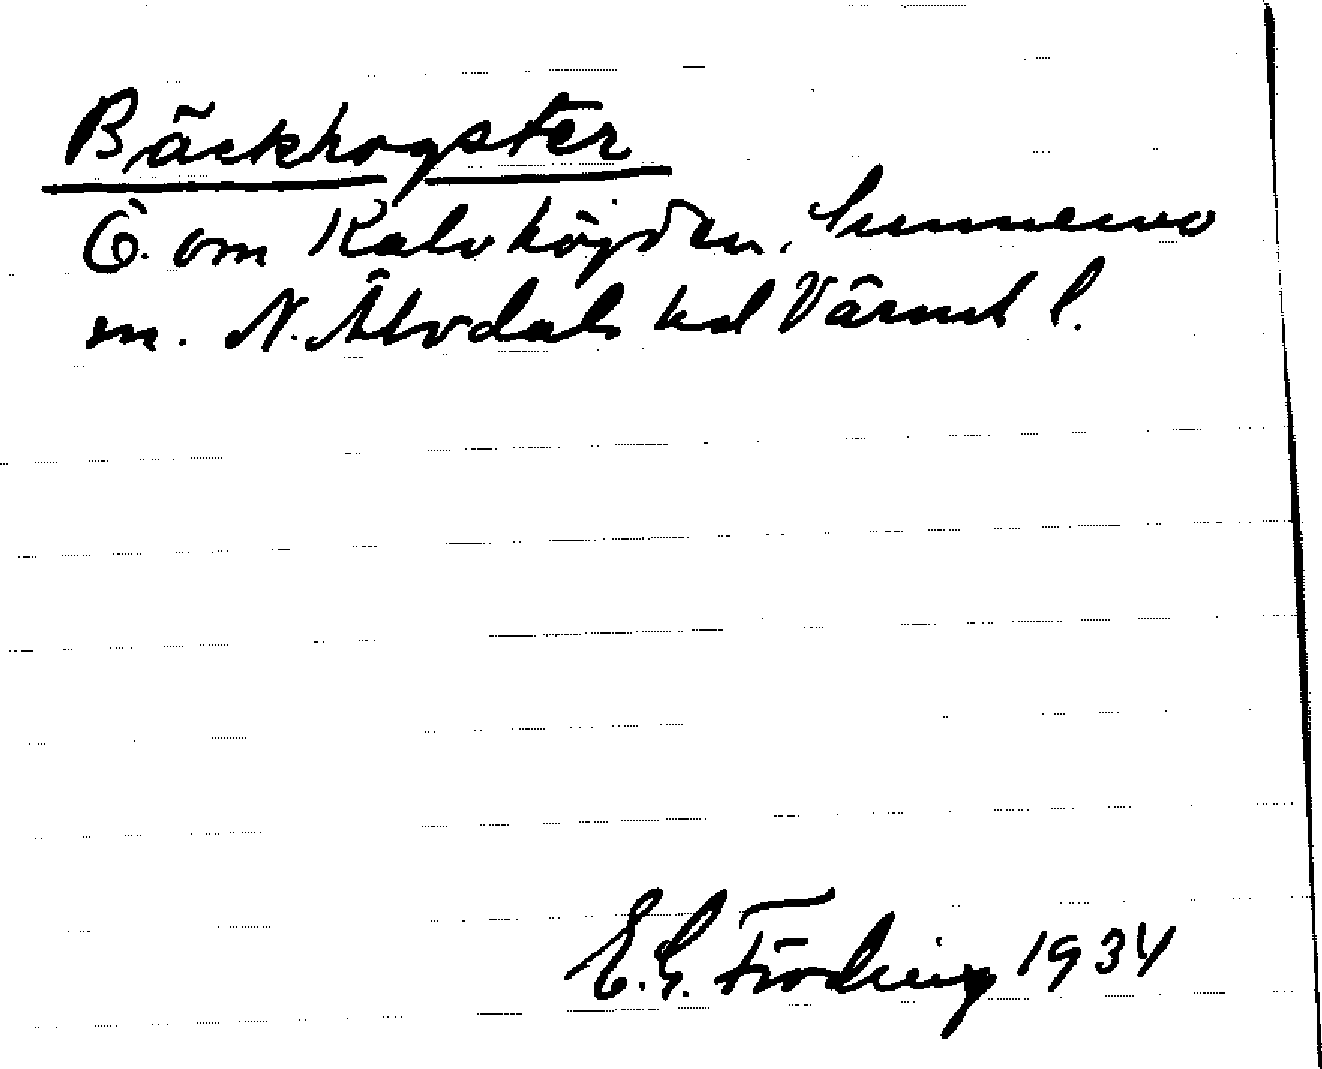 Bäckhogster
Ö. om Kalvhöjden, Sunnemo
sn. N. Älvdals hd Värml l.
E. G. Fröding 1934